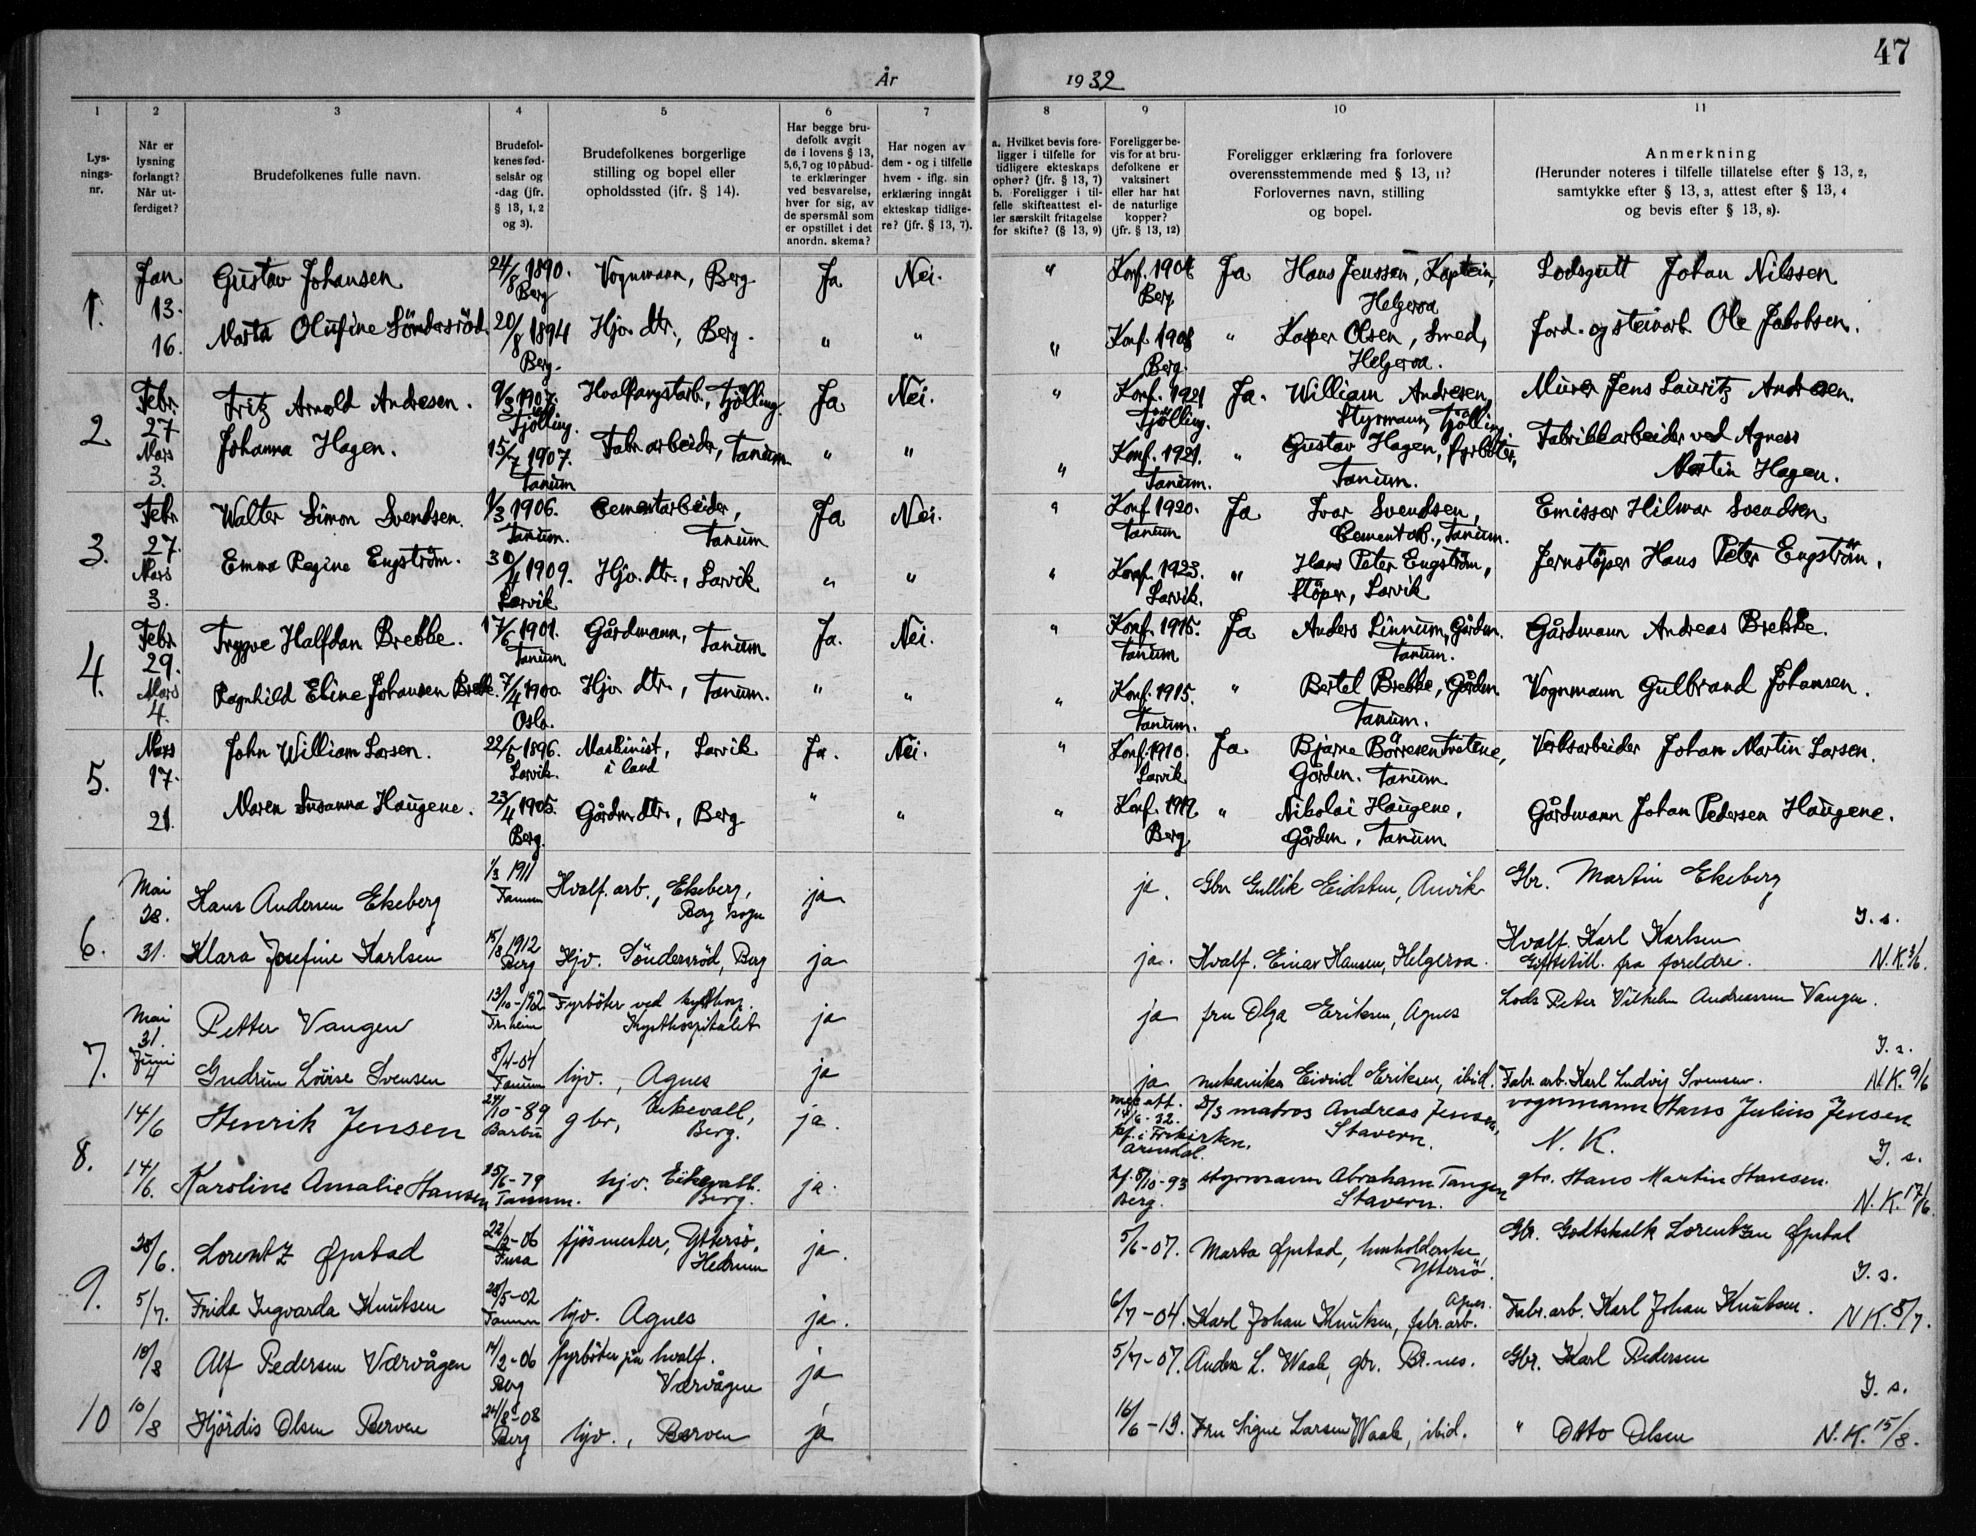 47
År 1932
1 2 3 4 5 6 7 8 9 10 11
Lys-
nings-
nr.
Når er
lysning
forlangt?
Når ut-
ferdiget?
Brudefolkenes fulle navn.
Brudefol-
kenes fød-
selsår og
-dag (jfr.
§ 13, 1, 2
og 3).
Brudefolkenes borgerlige
stilling og bopel eller
opholdssted (jfr. § 14).
Har begge bru-
defolk avgit
de i lovens § 13,
5, 6, 7 og 10 påbud-
te erklæringer
ved besvarelse,
hver for sig, av
de spørsmål som
er opstillet i det
anordn. skema?
Har nogen av
dem - og i tilfelle
hvem - iflg. sin
erklæring inngått
ekteskap tidlige-
re? (jfr. § 13, 7).
a. Hvilket bevis fore-
ligger i tilfelle for
tidligere ekteskaps
ophør? (jfr. § 13, 7)
b. Foreligger i til-
felle skifteattest el-
ler særskilt fritagelse
for skifte? (§ 13, 9)
Foreligger be-
vis for at bru-
defolkene er
vaksinert
eller har hat
de naturlige
kopper?
(jfr. § 13, 12)
Foreligger erklæring fra forlovere
overensstemmende med § 13, 11?
Forlovernes navn, stilling
og bopel.
Anmerkning
(Herunder noteres i tilfelle tillatelse efter § 13, 2,
samtykke efter § 13, 3, attest efter § 13, 4
og bevis efter § 13, 8).
1. Jan 13. Gustav Johansen 24/8 1890. Berg Vognmann, Berg Ja Nei. " Konf. 1904 Berg Ja Hans Jenssen, Kaptein, Helgeroa Lodsgutt Johan Nilssen
16. Marta Olufine Söndersröd 20/8 1894 Berg. Hjv. dtr., Berg. " " " Konf. 1908 Berg. " Kasper Olsen, Smed, Helgeroa. Jord- og steinarb. Ole Jakobsen.
2 Febr. 27. Fritz Arnold Andresen. 9/3 1907. Tjölling. Hvalfangstarb., Tjölling Ja Nei. " Konf. 1921 Tjölling. Ja. William Andresen, Styrmann, Tjölling Murer Jens Lauritz Andresen.
Mars 3. Johanna Hagen. 15/7 1907. Tanum Fabr. arbeider, Tanum " " " Konf. 1921. Tanum. " Gustav Hagen, fyrböter, Tanum. Fabrikkarbeider ved Agnes Martin Hagen.
3. Febr 27. Walter Simon Svendsen. 1/3 1906. Tanum. Cementarbeider, Tanum Ja Nei. " Konf 1920. Tanum Ja Ivar Svendsen, Cementarb., Tanum. Emissær Hilmar Svendsen
Mars 3. Emma Regine Engström. 30/4 1909. Larvik Hjv. dtr., Larvik " " " Konf. 1923. Larvik. " Hans Peter Engström, Stöper, Larvik Jernstöper Hans Peter Engström.
4. Febr 29. Trygve Halfdan Brekke. 17/6 1901. Tanum Gårdmann, Tanum Ja. Nei. " Konf. 1915. Tanum Ja Anders Linnum, Gårdm. Tanum. Gårdmann Andreas Brekke.
Mars 4. Ragnhild Eline Johansen Brekke. 7/4 1900. Oslo. Hjv. dtr., Tanum. " " " Konf. 1915. Tanum. " Bertel Brekke, Gårdm. Tanum. Vognmann Gulbrand Johansen.
5. Mars 17. John William Larsen. 22/5 1896. Larvik. Maskinist, i land Larvik Ja. Nei. " Konf. 1910. Larvik Ja Bjarne Börresen Tvetene, Gårdm. Tanum Verksarbeider Johan Martin Larsen.
21. Maren Susanna Haugene. 23/4 1905. Berg. Gårdm. dtr., Berg " " " Konf. 1919. Berg " Nikolai Haugene, Gårdm. Tanum Gårdmann Johan Pedersen Haugene.
6. Mai 28. Hans Andersen Ekeberg 1/3 1911 Tanum Hvalf. arb., Ekeberg, Berg sogn ja ja. Gbr. Gullik Eidsten, Anvik Gbr. Martin Ekeberg
J. s.
31. Klara Josefine Karlsen 15/8 1912 Berg Hjv. Söndersröd, Berg ja ja. Hvalf. Einar Hansen, Helgeroa. Hvalf. Karl Karlsen Giftetill. fra foreldre. N.K. 3/6.
7. Mai 31. Petter Vangen 13/10-1902 Fyrböter ved Kysthospitalet ja ja fru Olga Eriksen, Agnes Lods Peter Vilhelm Andreassen Vangen.
J. s.
Juni 4 Gudrun Lovise Svensen 8/4-04 Tanum hjv., Agnes ja ja mekaniker Eivind Eriksen, ibid. Fabr. arb. Karl Ludvig Svensen. N.K. 9/6
8. 14/6 Henrik Jensen 24/10-89 Barbu gbr., Eikevall, Berg. ja. kf. i Frikirken, Arendal. matros Andreas Jensen, Stavern. vognmann Hans Julius Jensen N. K.
J. s.
14/6. Karoline Amalie Hansen 15/6-79 Tanum. hjv. Eikevall. Berg. ja. kf. 8/10-93 Berg. styrmann Abraham Tangen Stavern. gbr. Hans Martin Hansen. N.K. 17/6.
9. 28/6. Lorentz Øpstad 22/2-06 Fusa fjösmester, Yttersö, Hedrum ja. 5/6-07. Marta Øpstad, husholderske, Yttersö. Gbr. Godtskalk Lorentzen Øpstad
J. s.
5/7. Frida Ingvarda Knutsen 28/5-02 Tanum hjv. Agnes ja. 6/7-04. Karl Johan Knutsen, fabr. arb. Agnes. Fabr. arb. Karl Johan Knutsen. N.K. 8/7.
10 10/8 Alf Pedersen Værvågen 14/2-06 Berg fyrböter på hvalf. Værvågen ja 5/7-07. Anders L. Waale, gbr. Br.nes. Gbr. Karl Pedersen
J. s.
10/8 Hjördis Olsen Berven 24/8-08 Berg hjv., Berven ja 16/6-13. Fru Signe Larsen Waale, ibid. " Otto Olsen N.K. 15/8.